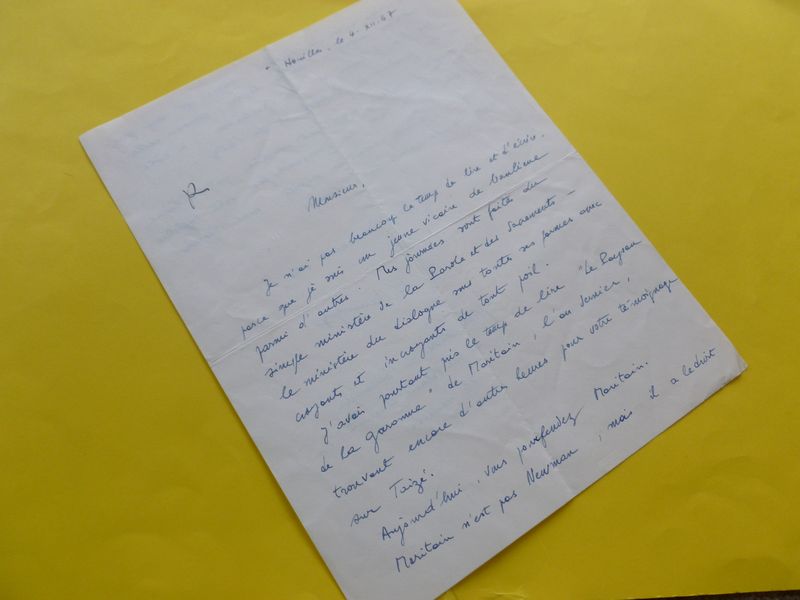 Houilles, le 4. XII. 67
R
Monsieur,
Je n'ai pas beaucoup le temps de lire et d'écrire
parce que je suis un jeune vicaire de banlieue
parmi d'autres. Mes journées sont faites du
simple ministère de la Parole et des Sacrements -
le ministère du dialogue sous toutes ses formes avec
croyants et incroyants de tout poil.
J'avais pourtant pris le temps de lire "Le Paysan
de la Garonne" de Maritain, l'an dernier,
trouvant encore d'autres heures pour votre témoignage
sur Taizé.
Aujourd'hui, vous pourfendez Maritain.
Maritain n'est pas Newman, mais il a le droit